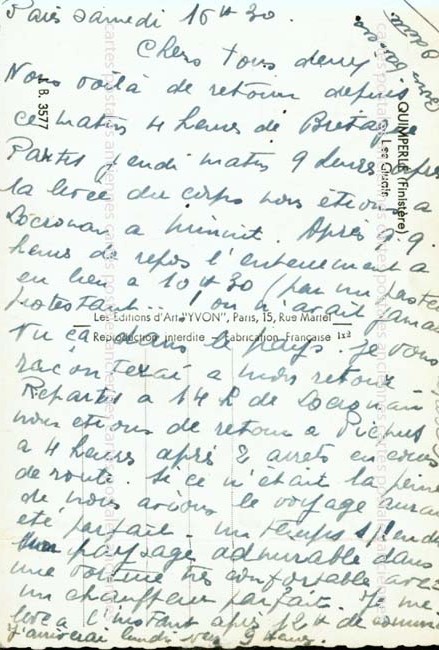 Paris samedi 16 H 30.
Chers tous deux
Nous voilà de retour depuis
ce matin 4 heures de Bretagne
Partis jeudi matin 9 heures après
la levée du corps nous étions à
Locronan à minuit. Après 9
heures de repos l'enterrement a
eu lieu à 10 H 30 (par un pasteur
protestant... ! on n'avait jamais
vu ça dans le pays. je vous
raconterai à mon retour
Repartis à 14 h de Locronan
nous étions de retour à Picpus
à 4 heures après 2 arrêts en cours
de route. Si ce n'était la peine
de nous avions le voyage aurait
été parfait. un temps splendide
un paysage admirable dans
une voiture très confortable avec
un chauffeur parfait. Je me
lève à l'instant après 12 H de sommeil
J'arriverai lundi vers 9 heures.
QUIMPERLÉ (Finistère)
Les Quais
J. B. 3577
Les Editions d'Art "YVON", Paris, 15, Rue Martel
Reproduction interdite - Fabrication Française
cartes postales anciennes